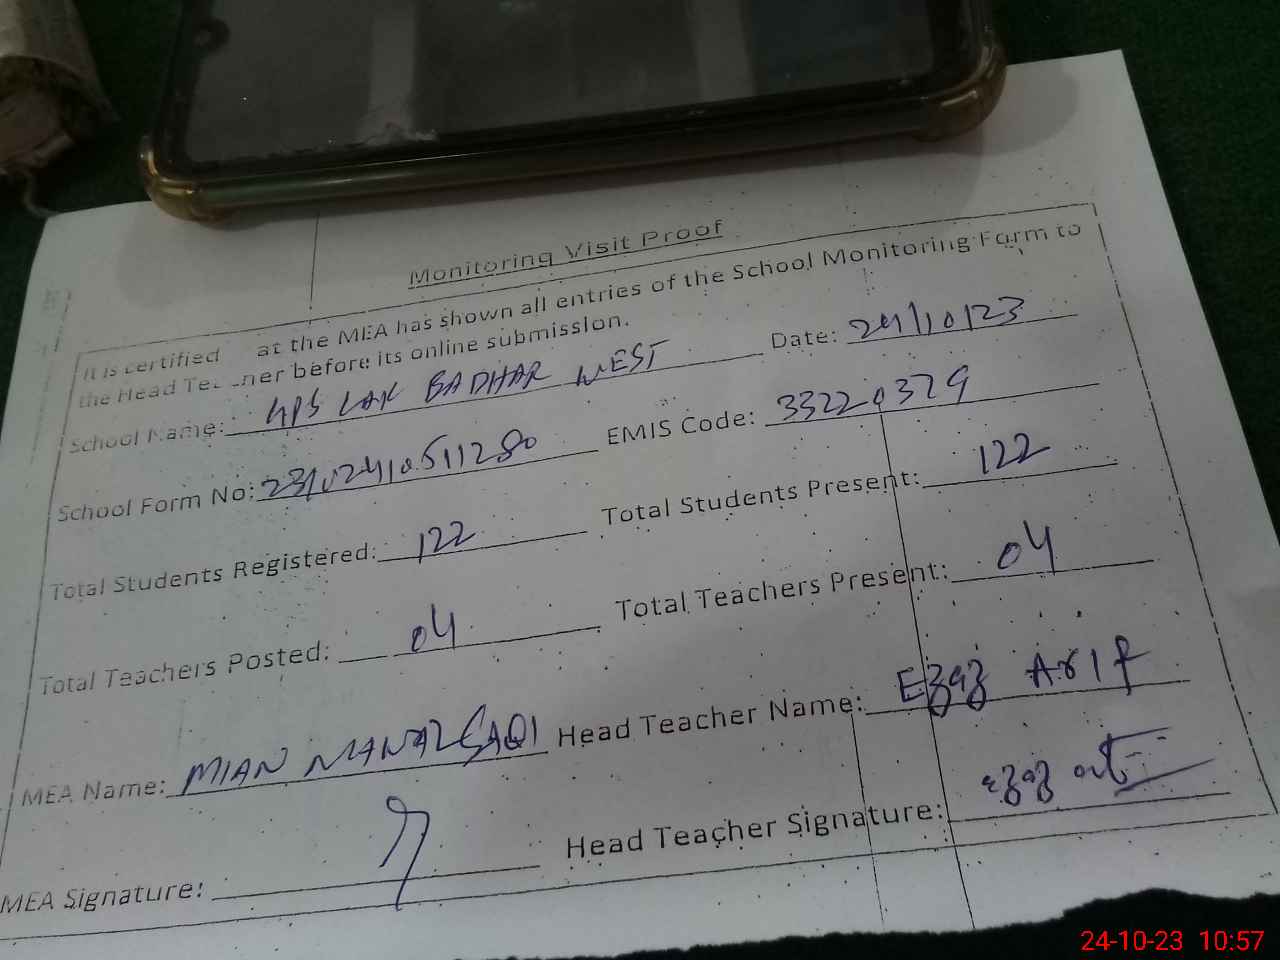 Monitoring Visit Proof
It is certified at the MEA has shown all entries of the School Monitoring Form to
the Head Teacher before its online submission.
School Name: GPS LAK BADHAR WEST Date: 24/10/23
School Form No: EMIS Code: 33220329
Total Students Registered: 122 Total Students Present: 122
Total Teachers Posted: 04 Total Teachers Present: 04
MEA Name: MIAN Head Teacher Name: Ezaz Arif
MEA Signature: Head Teacher Signature:
24-10-23 10:57